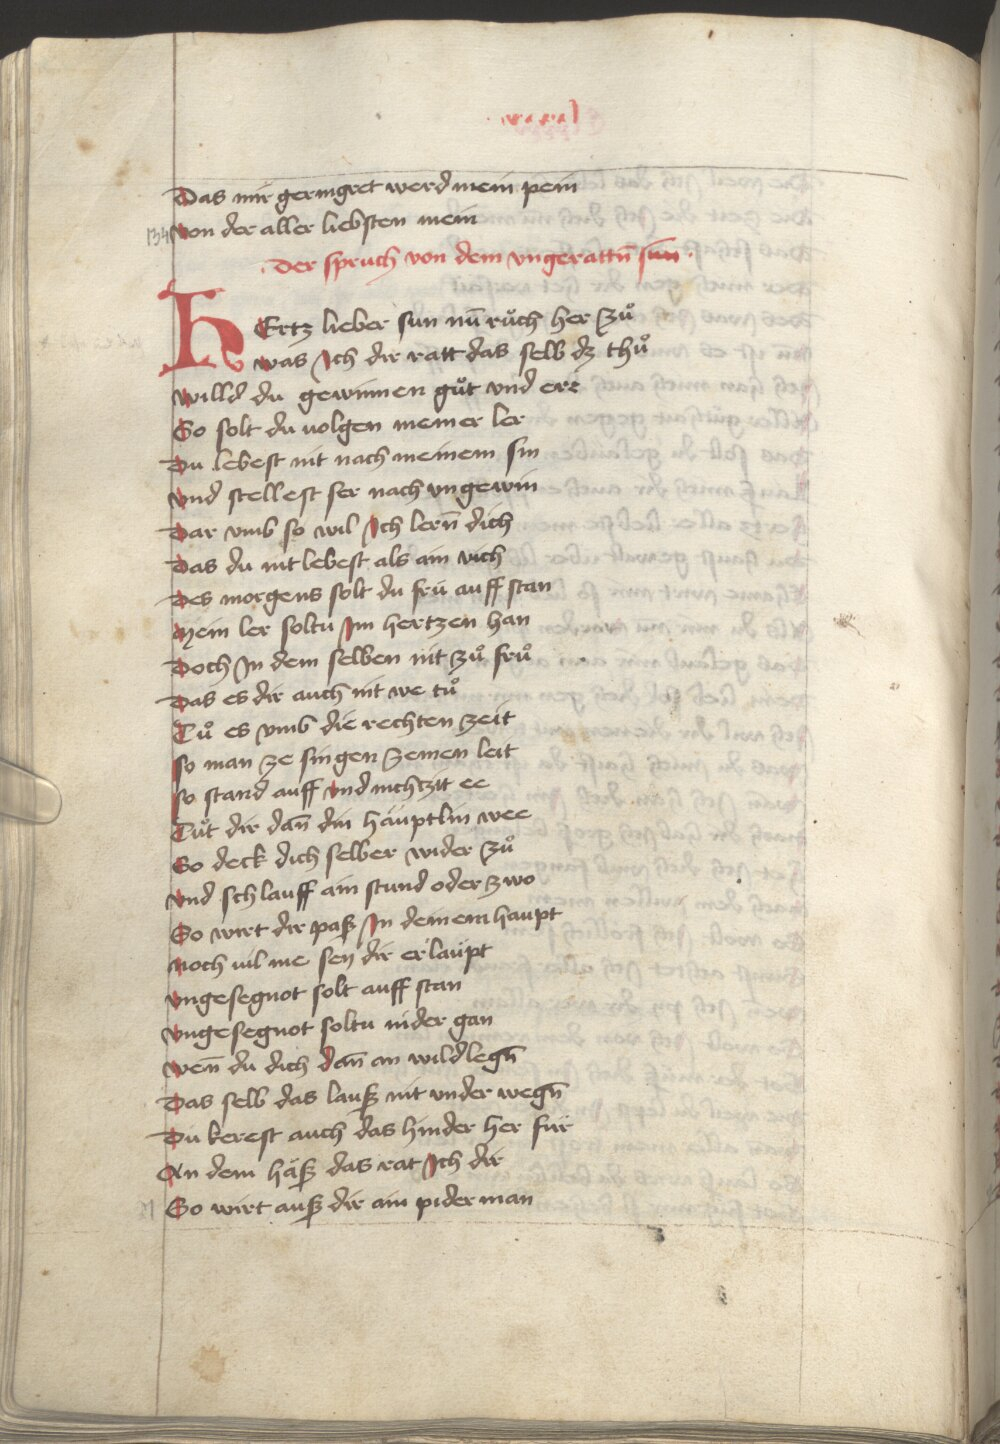 Das mir geringret werd mein pein
134 Von der aller liebsten mein
Der spruch von dem vngerattn̄ sun
HErtz lieber sun nū růch her zů
was Ich dir ratt das selb dz thů
willd du gewinnen gůt vnd ere
So solt du uolgen meiner ler
Du lebest nit nach meinem sin
Vnd stellest ser nach vngewin
Dar vmb so wil Ich lern̄ dich
Das du nit lebest als ain vich
Des morgens solt du frü auff stan
Mein ler soltu Im hertzen han
Doch In dem selben nit zů frů
Das es dir auch nit we tů
Tů es vmb die rechten zeit
so man ze singen zemen leit
so stand auff vnd nichtzit ee
Tůt dir dan̄ din häuptlin wee
So deck dich selber wider zů
Vnd schlauff ain stund oder zwo
So wirt dir paß In deinem haupt
Noch uil me sey dir erlaupt
Vngesegnot solt auff stan
Vngesegnot soltu nider gan
Wen̄ du dich dan̄ an wild legn̄
Das selb das lauß nit vnder wegn̄
Du kerest auch das hinder her für
An dem häß das rat Ich dir
21 So wirt auß dir ain pider man